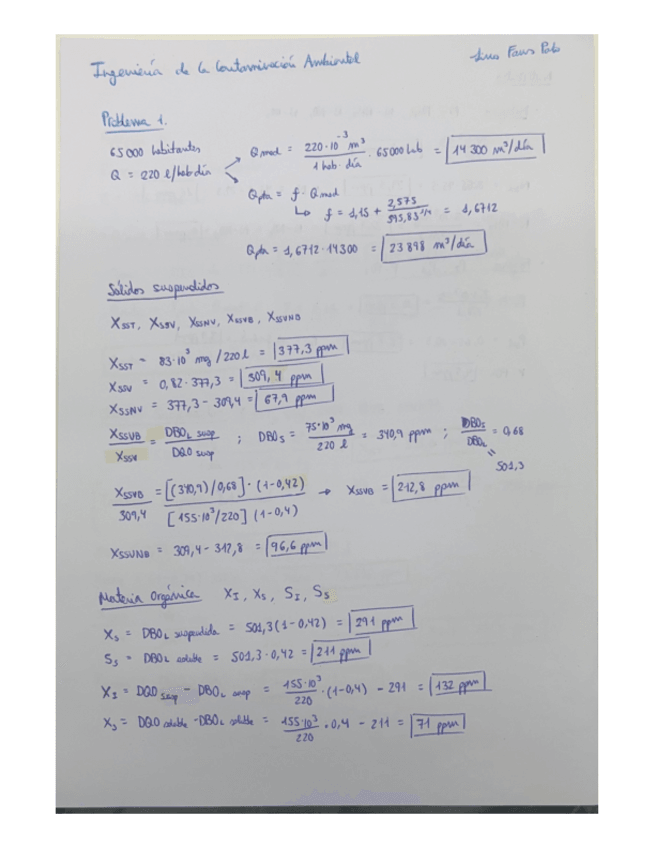 Ingeniería de la Contaminación Ambiental
Problema 1.
65000 habitantes
Q = 220 l/hab día
Q med = 220·10⁻³ m³ / 1 hab · día · 65000 hab = 14 300 m³/día
Qpta = f · Q med
f = 1,15 + 2,575 / 595,83^1/4 = 1,6712
Qpta = 1,6712 · 14300 = 23 898 m³/día
Sólidos suspendidos
XSST, XSSV, XSSNV, XSSVB, XSSVNB
XSST = 83·10³ mg / 220 l = 377,3 ppm
XSSV = 0,82 · 377,3 = 309,4 ppm
XSSNV = 377,3 - 309,4 = 67,9 ppm
XSSVB / XSSV = DBOL susp / DQO susp ; DBO5 = 75·10³ mg / 220 l = 340,9 ppm ; DBO5 / DBOL = 0,68
501,3
XSSVB / 309,4 = [(340,9)/0,68] · (1-0,42) / [155·10³/220] (1-0,4) → XSSVB = 212,8 ppm
XSSVNB = 309,4 - 312,8 = 96,6 ppm
Materia Orgánica XI, XS, SI, SS
XS = DBOL suspendida = 501,3 (1-0,42) = 291 ppm
SS = DBOL soluble = 501,3 · 0,42 = 211 ppm
XS = DQO susp - DBOL susp = 155·10³ / 220 · (1-0,4) - 291 = 132 ppm
XS = DQO soluble - DBOL soluble = 155·10³ / 220 · 0,4 - 211 = 71 ppm